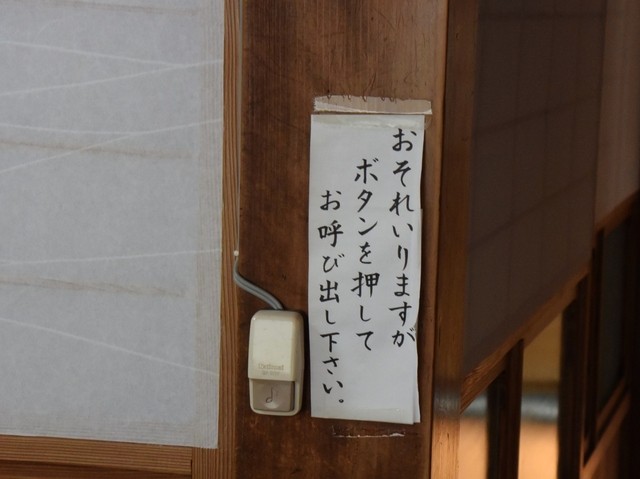 おそれいりますが
ボタンを押して
お呼び出し下さい。